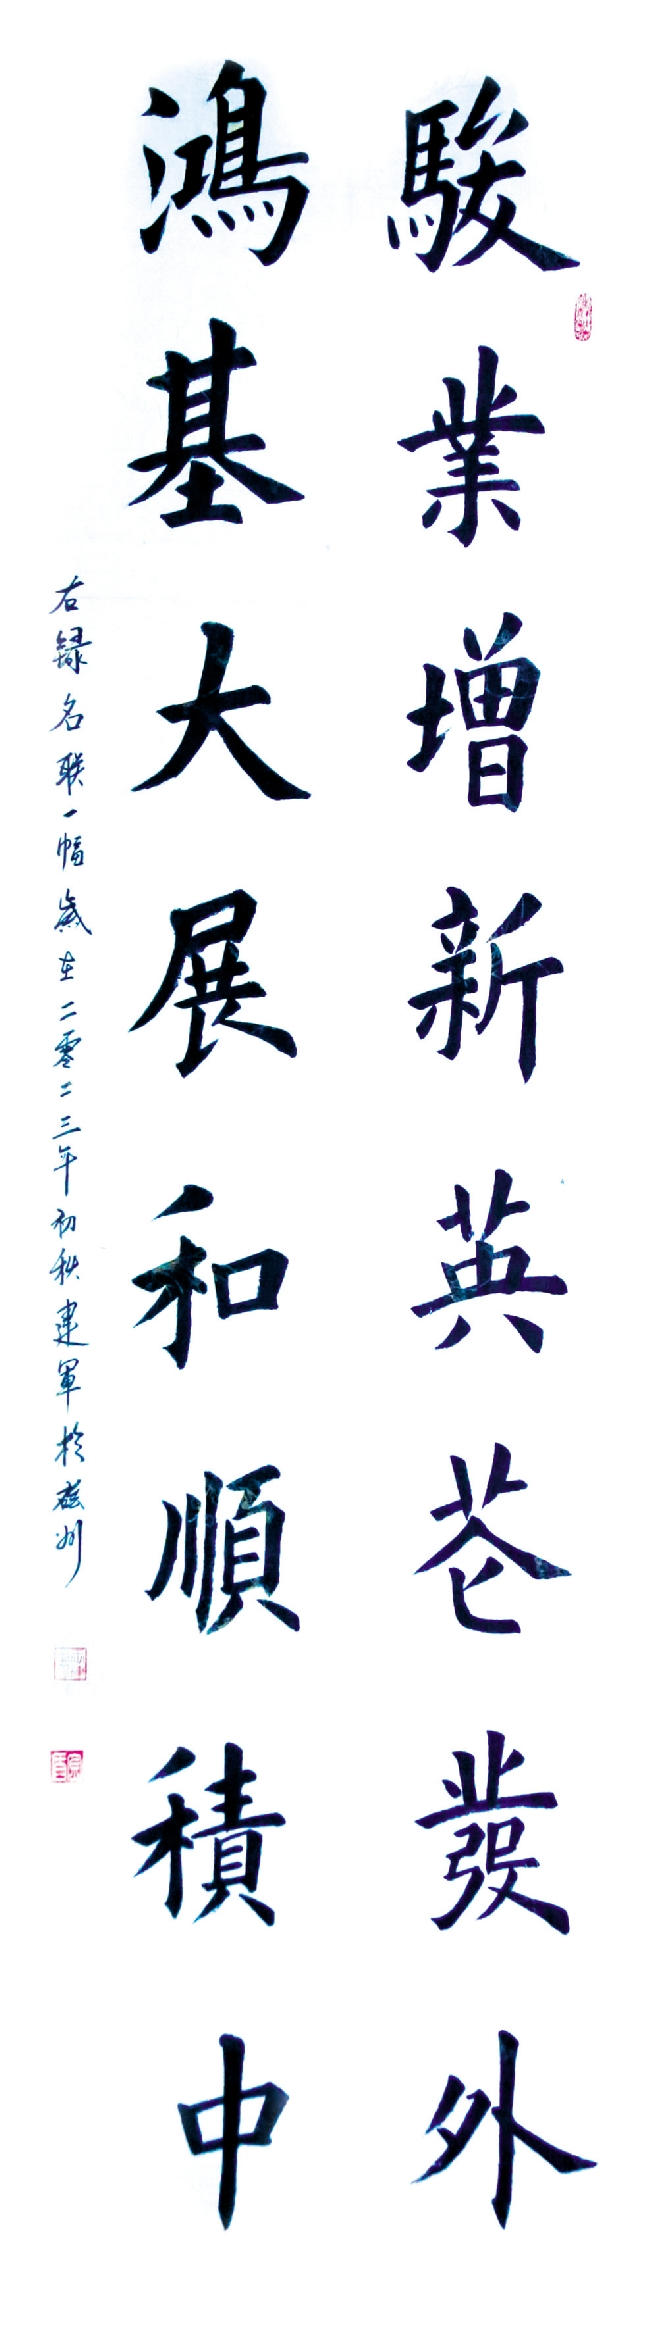 駿業增新英花發外
鴻基大展和順積中
右録名联一幅歲在二零二三年初秋建軍於磁州